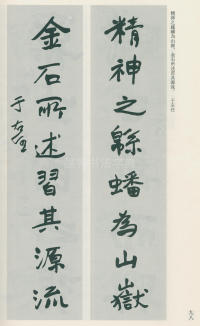 精神之緜蟠為山嶽，金石所述習其源流。
精神之緜蟠為山嶽
金石所述習其源流
于右任
九八